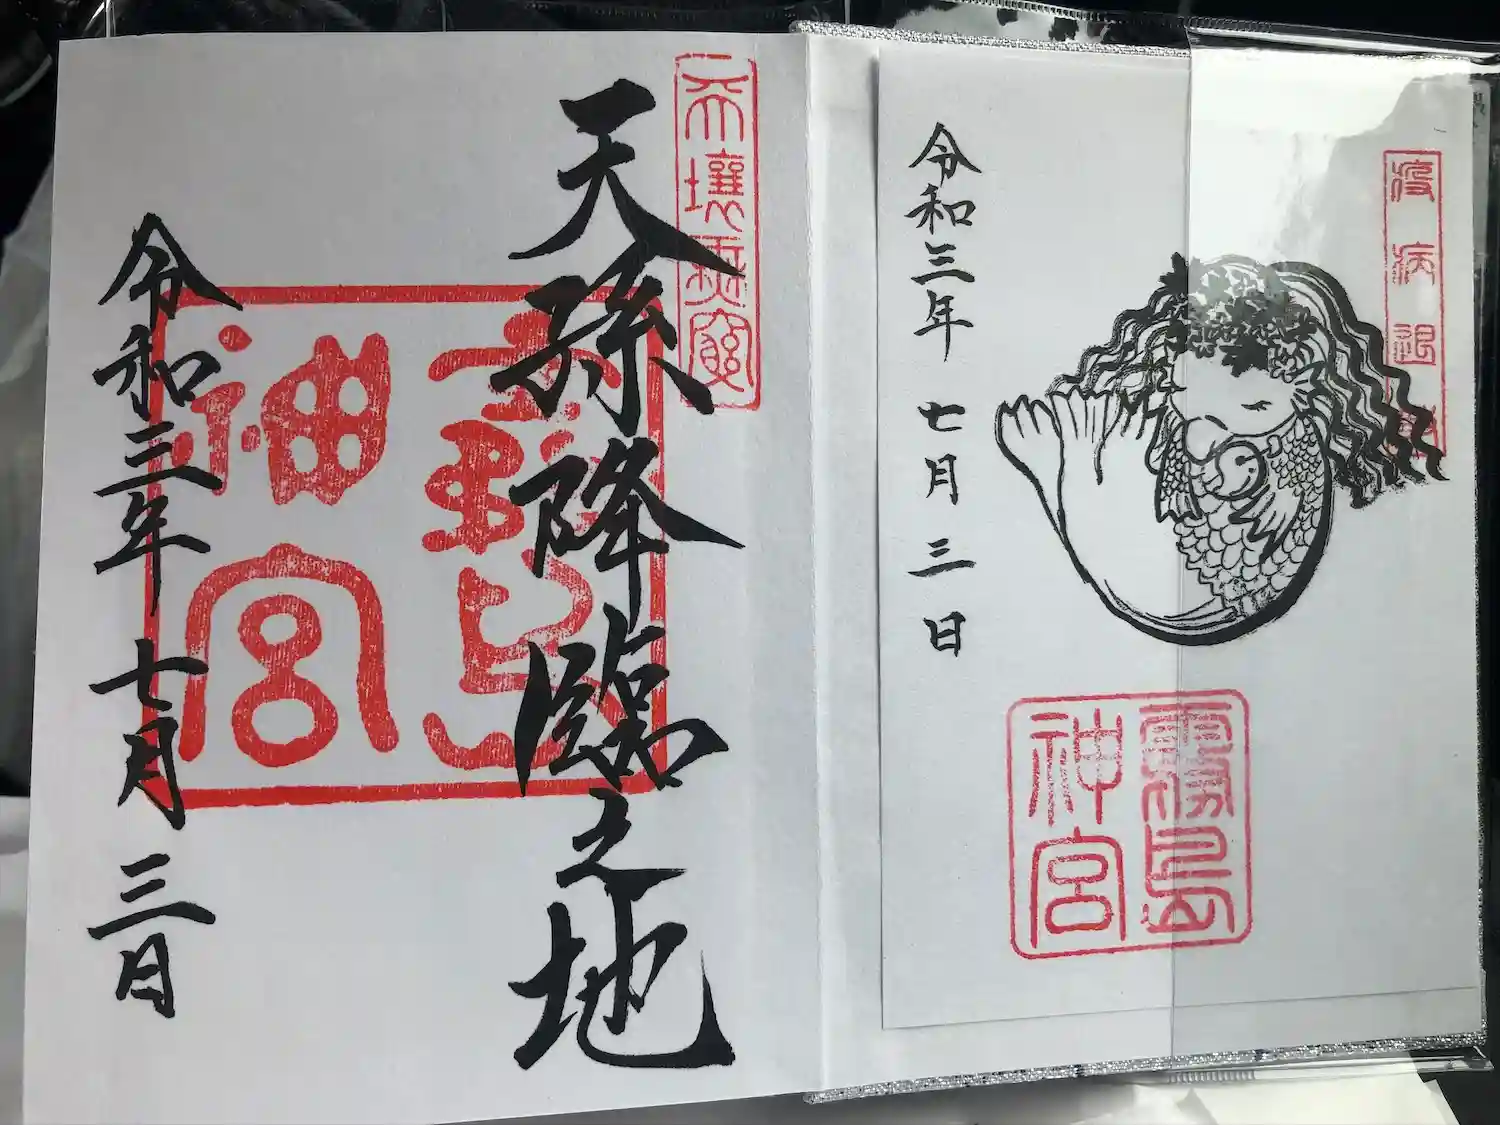 疫病退
霧島
神宮
令和三年 七月三日
天壤無窮
天孫降臨之地
霧島
神宮
令和三年 七月三日